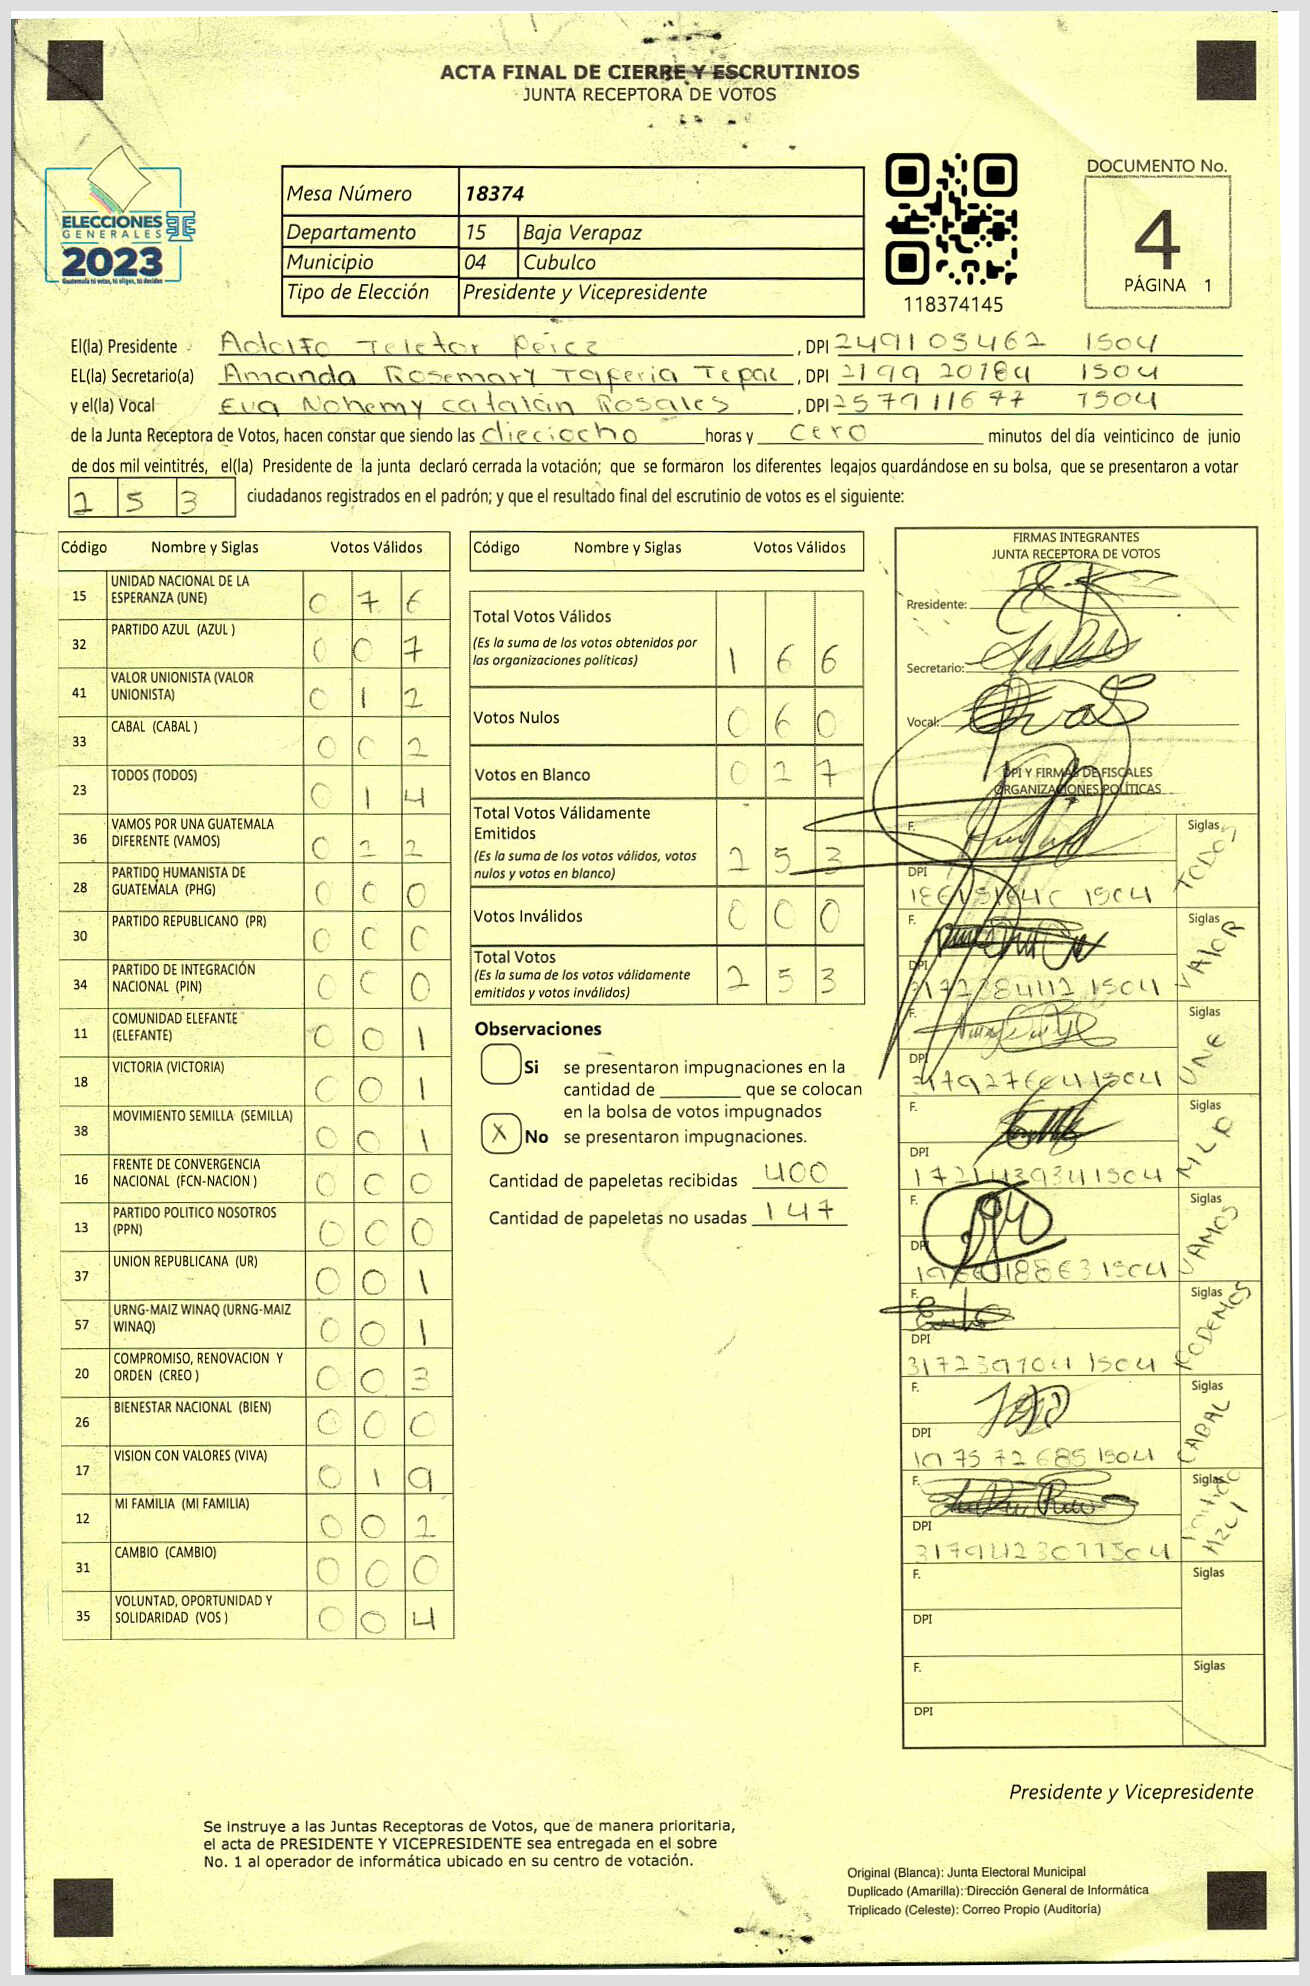 ACTA FINAL DE CIERRE Y ESCRUTINIOS
JUNTA RECEPTORA DE VOTOS
ELECCIONES
GENERALES
2023
Guatemala tú votas, tú eliges, tú decides
Mesa Número 18374
Departamento 15 Baja Verapaz
Municipio 04 Cubulco
Tipo de Elección Presidente y Vicepresidente
118374145
DOCUMENTO No.
4
PÁGINA 1
El(la) Presidente Adolfo Teletor Pérez , DPI 249105462 1504
EL(la) Secretario(a) Amanda Rosemary Taperia Tepac , DPI 2199 20184 1504
y el(la) Vocal Eva Nohemy Catalán Rosales , DPI 257911677 1504
de la Junta Receptora de Votos, hacen constar que siendo las dieciocho horas y cero minutos del día veinticinco de junio
de dos mil veintitrés, el(la) Presidente de la junta declaró cerrada la votación; que se formaron los diferentes legajos guardándose en su bolsa, que se presentaron a votar
253 ciudadanos registrados en el padrón; y que el resultado final del escrutinio de votos es el siguiente:
Código Nombre y Siglas Votos Válidos
15 UNIDAD NACIONAL DE LA ESPERANZA (UNE) 0 7 6
32 PARTIDO AZUL (AZUL ) 0 0 7
41 VALOR UNIONISTA (VALOR UNIONISTA) 0 1 2
33 CABAL (CABAL ) 0 0 2
23 TODOS (TODOS) 0 1 4
36 VAMOS POR UNA GUATEMALA DIFERENTE (VAMOS) 0 2 2
28 PARTIDO HUMANISTA DE GUATEMALA (PHG) 0 0 0
30 PARTIDO REPUBLICANO (PR) 0 0 0
34 PARTIDO DE INTEGRACIÓN NACIONAL (PIN) 0 0 0
11 COMUNIDAD ELEFANTE (ELEFANTE) 0 0 1
18 VICTORIA (VICTORIA) 0 0 1
38 MOVIMIENTO SEMILLA (SEMILLA) 0 0 1
16 FRENTE DE CONVERGENCIA NACIONAL (FCN-NACION ) 0 0 0
13 PARTIDO POLITICO NOSOTROS (PPN) 0 0 0
37 UNION REPUBLICANA (UR) 0 0 1
57 URNG-MAIZ WINAQ (URNG-MAIZ WINAQ) 0 0 1
20 COMPROMISO, RENOVACION Y ORDEN (CREO ) 0 0 3
26 BIENESTAR NACIONAL (BIEN) 0 0 0
17 VISION CON VALORES (VIVA) 0 1 9
12 MI FAMILIA (MI FAMILIA) 0 0 2
31 CAMBIO (CAMBIO) 0 0 0
35 VOLUNTAD, OPORTUNIDAD Y SOLIDARIDAD (VOS ) 0 0 4
Código Nombre y Siglas Votos Válidos
Total Votos Válidos 1 6 6
(Es la suma de los votos obtenidos por
las organizaciones políticas)
Votos Nulos 0 6 0
Votos en Blanco 0 2 7
Total Votos Válidamente
Emitidos 2 5 3
(Es la suma de los votos válidos, votos
nulos y votos en blanco)
Votos Inválidos 0 0 0
Total Votos 2 5 3
(Es la suma de los votos válidamente
emitidos y votos inválidos)
Observaciones
Si se presentaron impugnaciones en la
cantidad de ________ que se colocan
en la bolsa de votos impugnados
X No se presentaron impugnaciones.
Cantidad de papeletas recibidas 400
Cantidad de papeletas no usadas 147
FIRMAS INTEGRANTES
JUNTA RECEPTORA DE VOTOS
Presidente:
Secretario:
Vocal:
DPI Y FIRMAS DE FISCALES
ORGANIZACIONES POLÍTICAS
F. Siglas TODOS
DPI 1504
F. Siglas VALOR
DPI 3172384112 1504
F. Siglas UNE
DPI 1504
F. Siglas MLP
DPI 1504
F. Siglas VAMOS
DPI 1504
F. Siglas PODEMOS
DPI 317239704 1504
F. Siglas CABAL
DPI 1504
F. Siglas Partido Azul
DPI 1504
F. Siglas
DPI
F. Siglas
DPI
Presidente y Vicepresidente
Se instruye a las Juntas Receptoras de Votos, que de manera prioritaria,
el acta de PRESIDENTE Y VICEPRESIDENTE sea entregada en el sobre
No. 1 al operador de informática ubicado en su centro de votación.
Original (Blanca): Junta Electoral Municipal
Duplicado (Amarilla): Dirección General de Informática
Triplicado (Celeste): Correo Propio (Auditoría)